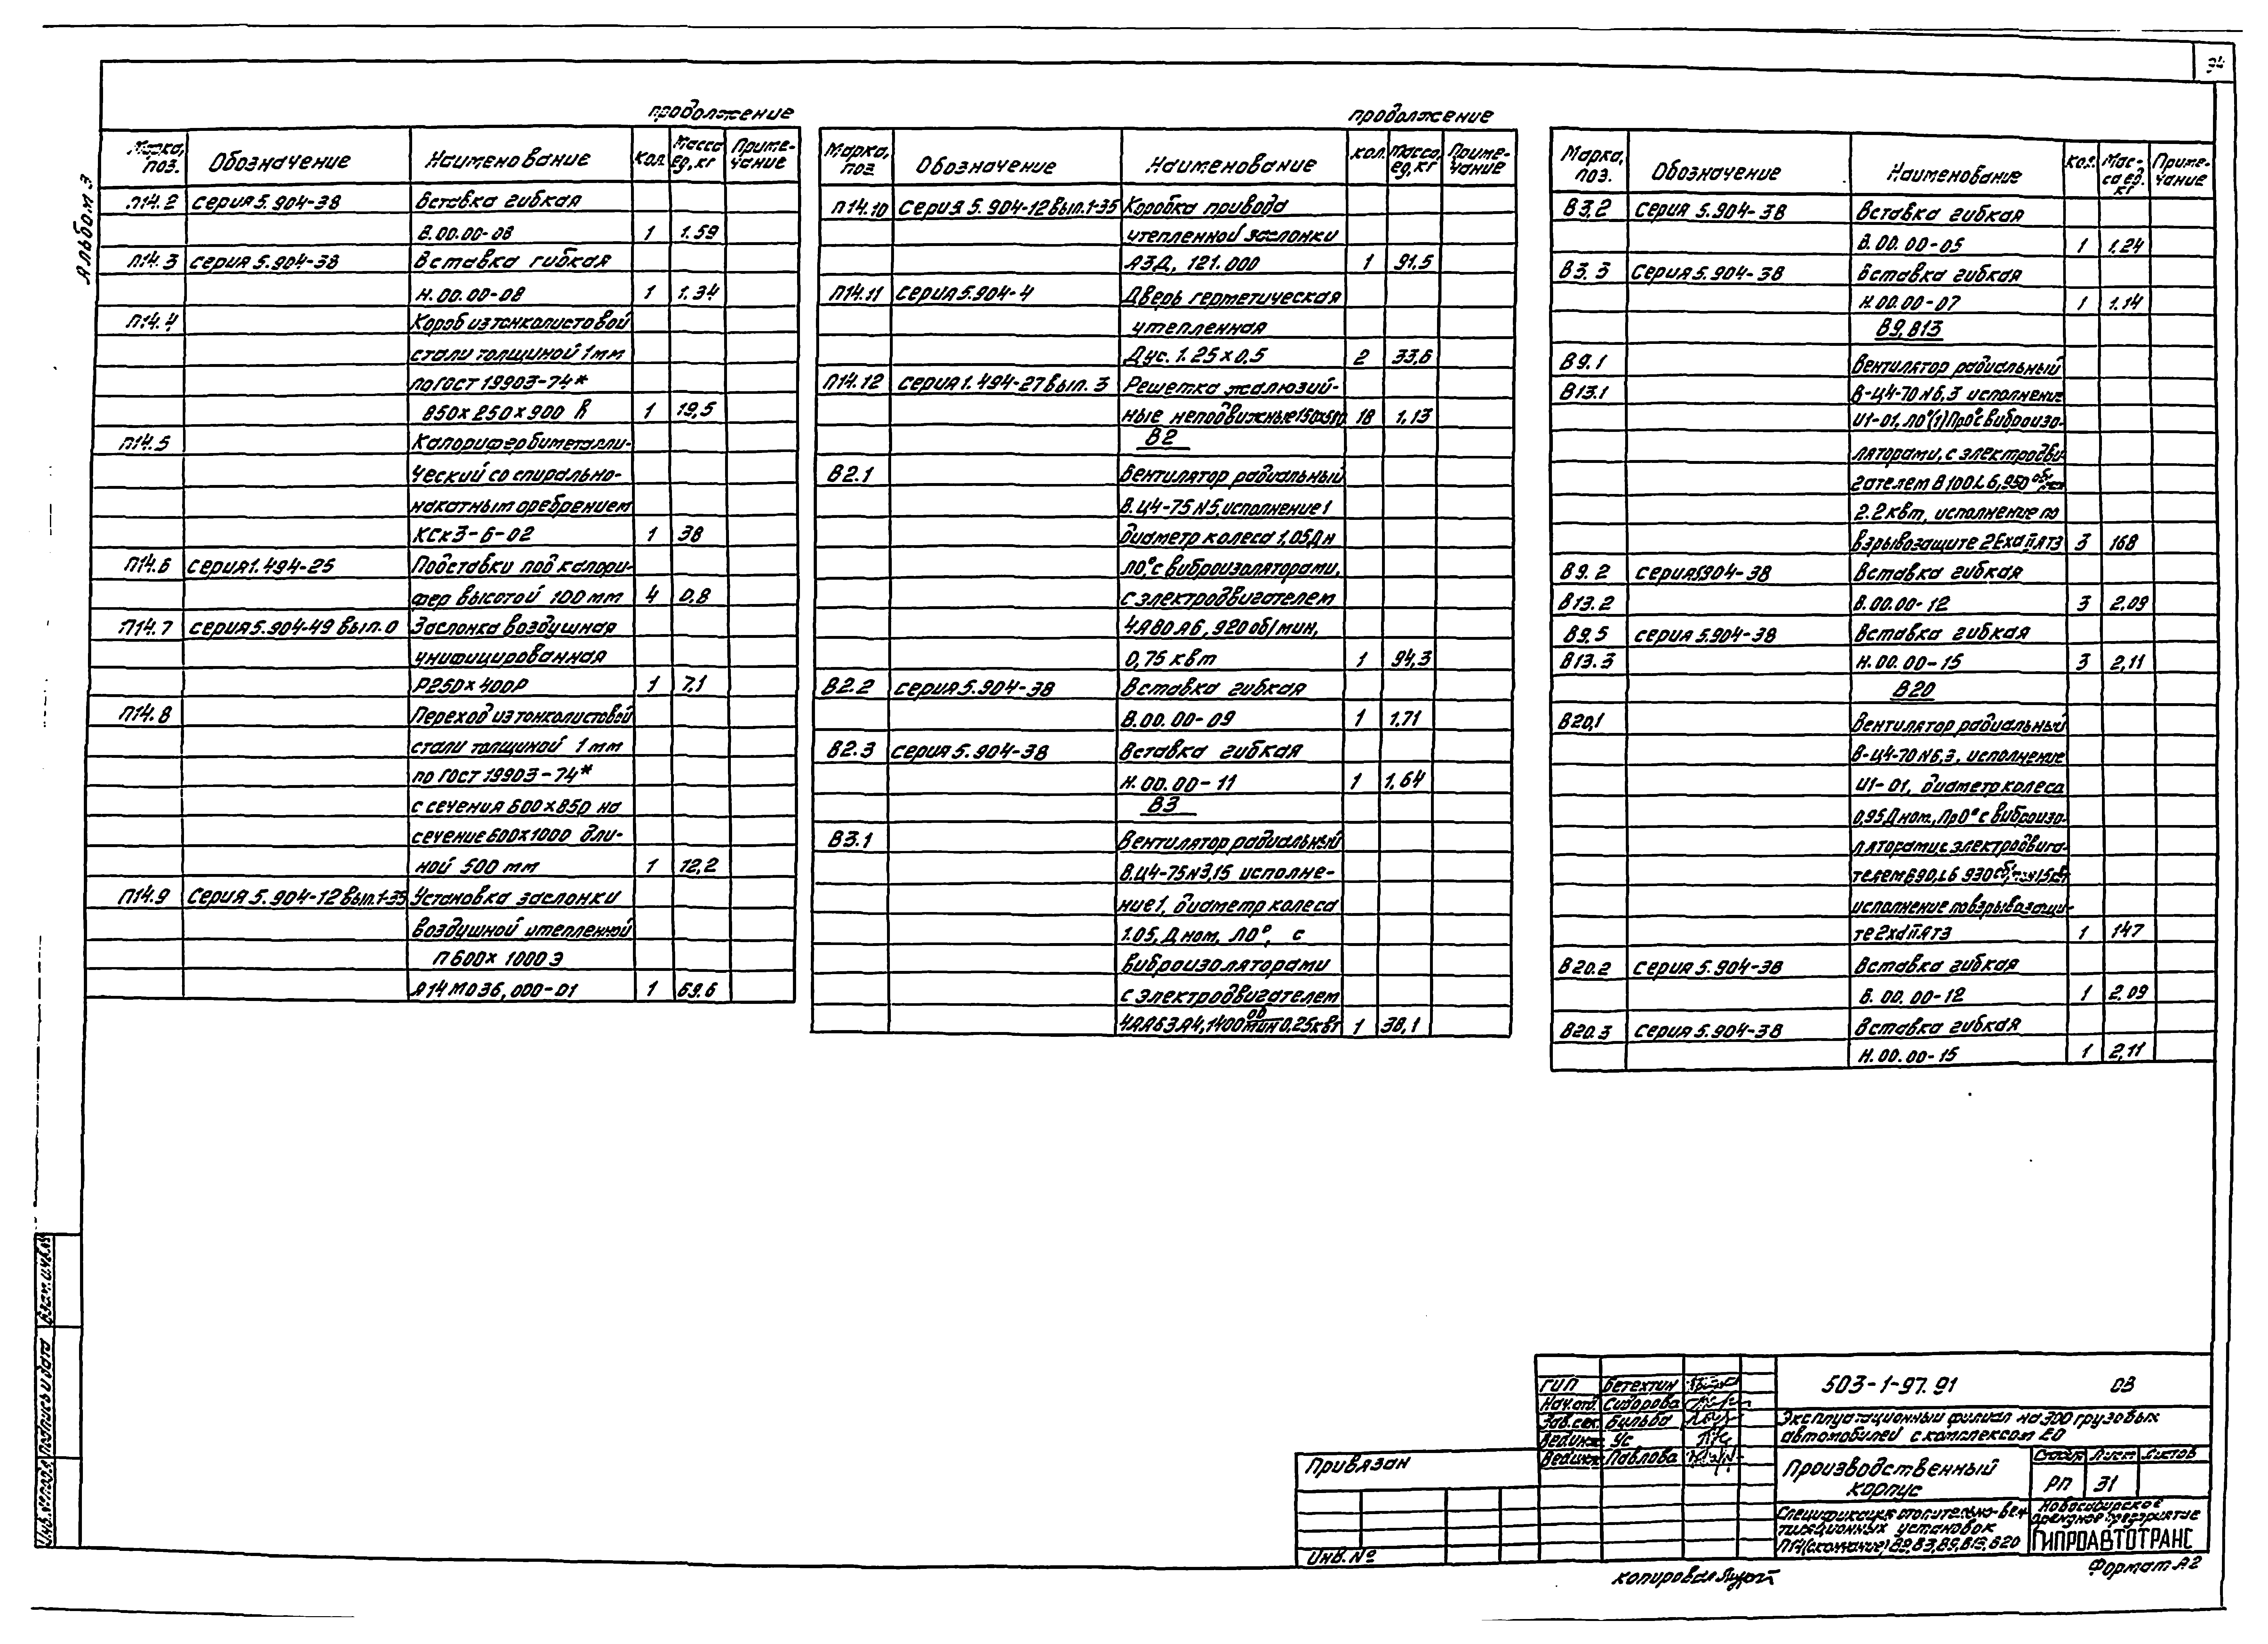 94
Альбом 3
продолжение
Марка, поз. Обозначение Наименование Кол. Масса ед, кг Приме-чание
П14.2 Серия 5.904-38 Вставка гибкая
В.00.00-08 1 1.59
П14.3 Серия 5.904-38 Вставка гибкая
Н.00.00-08 1 1.34
П14.4 Короб из тонколистовой
стали толщиной 1 мм
по ГОСТ 19903-74*
850×250×900 h 1 19,5
П14.5 Калорифер биметалли-
ческий со спирально-
накатным оребрением
КСк3-6-02 1 38
П14.6 Серия 1.494-25 Подставки под калори-
фер высотой 100 мм 4 0,8
П14.7 Серия 5.904-49 вып.0 Заслонка воздушная
унифицированная
Р250×400Р 1 7,1
П14.8 Переход из тонколистовой
стали толщиной 1 мм
по ГОСТ 19903-74*
с сечения 600×850 на
сечение 600×1000 дли-
ной 500 мм 1 12,2
П14.9 Серия 5.904-12 вып.1-35 Установка заслонки
воздушной утепленной
П 600×1000 Э
А14М036,000-01 1 69.6
продолжение
Марка, поз Обозначение Наименование Кол. Масса, ед, кг Приме-чание
П14.10 Серия 5.904-12 вып.1-35 Коробка привода
утепленной заслонки
АЗД, 121.000 1 91,5
П14.11 Серия 5.904-4 Дверь герметическая
утепленная
Дус. 1.25×0.5 2 33,6
П14.12 Серия 1.494-27 вып. 3 Решетка жалюзий-
ные неподвижные 150×580 18 1,13
В2
В2.1 Вентилятор радиальный
В.Ц4-75 N5, исполнение 1
диаметр колеса 1,05Дн
Л0°, с виброизоляторами,
с электродвигателем
4А80А6, 920 об/мин,
0,75 квт 1 94,3
В2.2 Серия 5.904-38 Вставка гибкая
В.00.00-09 1 1.71
В2.3 Серия 5.904-38 Вставка гибкая
Н.00.00-11 1 1,64
В3
В3.1 Вентилятор радиальный
В.Ц4-75 N3,15 исполне-
ние 1, диаметр колеса
1.05, Д ном, Л0°, с
виброизоляторами
с электродвигателем
4АА63А4, 1400 об/мин 0,25 квт 1 38,1
Марка, поз. Обозначение Наименование Кол. Мас-са ед. кг Приме-чание
В3.2 Серия 5.904-38 Вставка гибкая
В.00.00-05 1 1.24
В3.3 Серия 5.904-38 Вставка гибкая
Н.00.00-07 1 1.14
В9, В13
В9.1 Вентилятор радиальный
В13.1 В-Ц4-70 N6,3 исполнение
И1-01, Л0°(1)Пр0° с виброизо-
ляторами, с электродви-
гателем В100L6, 950 об/мин
2.2 квт, исполнение по
взрывозащите 2ЕхdIIАТ3 3 168
В9.2 Серия 5.904-38 Вставка гибкая
В13.2 В.00.00-12 3 2,09
В9.5 Серия 5.904-38 Вставка гибкая
В13.3 Н.00.00-15 3 2,11
В20
В20,1 Вентилятор радиальный
В-Ц4-70 N6,3, исполнение
И1-01, диаметр колеса
0,95 Д ном, Пр0° с виброизо-
ляторами с электродвига-
телем В90L6 930 об/мин 1,5 квт
исполнение по взрывозащи-
те 2ехdIIАТ3 1 147
В20.2 Серия 5.904-38 Вставка гибкая
В.00.00-12 1 2,09
В20.3 Серия 5.904-38 Вставка гибкая
Н.00.00-15 1 2,11
Инв.№ подл Подпись и дата Взам. инв.№
Привязан
Инв.№
ГИП Бетехтин
Нач.отд. Сидорова
Зав.сек. Бильва
Вед.инж Ус
Вед.инж Павлова
503-1-97.91 ОВ
Эксплуатационный филиал на 300 грузовых
автомобилей с комплексом ЕО
Производственный
корпус
Стадия Лист Листов
РП 31
Спецификация отопительно-вен-
тиляционных установок
П14(окончание) В2, В3, В9, В13, В20
Новосибирское
арендное предприятие
ГИПРОАВТОТРАНС
Копировал
Формат А2